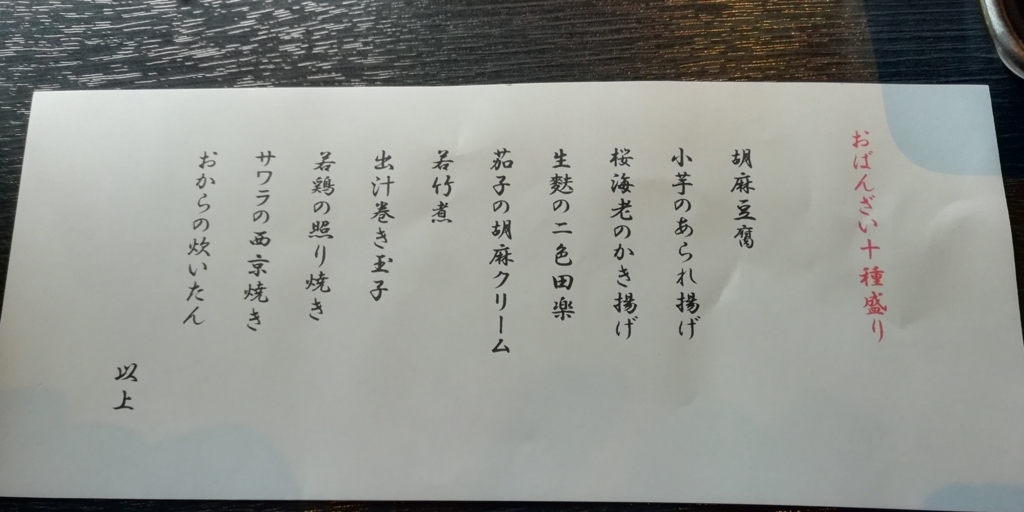 おばんざい十種盛り
胡麻豆腐
小芋のあられ揚げ
桜海老のかき揚げ
生麩の二色田楽
茄子の胡麻クリーム
若竹煮
出汁巻き玉子
若鶏の照り焼き
サワラの西京焼き
おからの炊いたん
以上